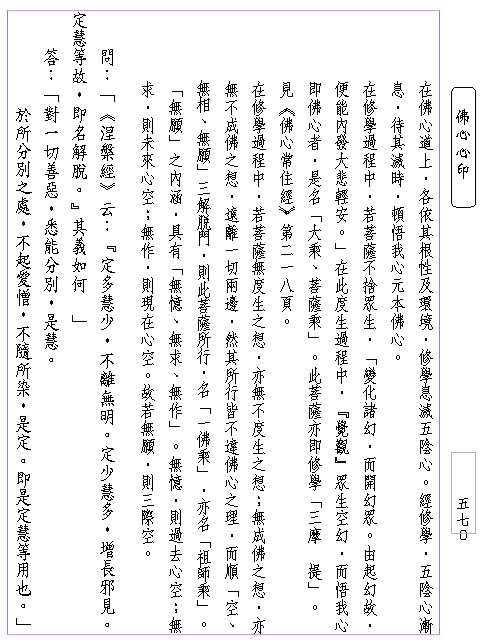 佛心心印
在佛心道上，各依其根性及環境，修學息滅五陰心。經修學，五陰心漸
息，待其滅時，頓悟我心元本佛心。
在修學過程中，若菩薩不捨眾生，「變化諸幻，而開幻眾。由起幻故，
便能內發大悲輕安。」在此度生過程中，『覺觀』眾生空幻，而悟我心
即佛心者，是名「大乘、菩薩乘」。此菩薩亦即修學「三摩　提」。
見《佛心常住經》第二一八頁。
在修學過程中，若菩薩無度生之想，亦無不度生之想；無成佛之想，亦
無不成佛之想，遠離一切兩邊，然其所行皆不違佛心之理，而順「空、
無相、無願」三解脫門，則此菩薩所行，名「一佛乘」，亦名「祖師乘」。
「無願」之內涵，具有「無憶、無求、無作」。無憶，則過去心空；無
求，則未來心空；無作，則現在心空。故若無願，則三際空。
問：「《涅槃經》云：『定多慧少，不離無明。定少慧多，增長邪見。
定慧等故，即名解脫。』其義如何　」
答：「對一切善惡，悉能分別，是慧。
於所分別之處，不起愛憎，不隨所染，是定。即是定慧等用也。」
五七０